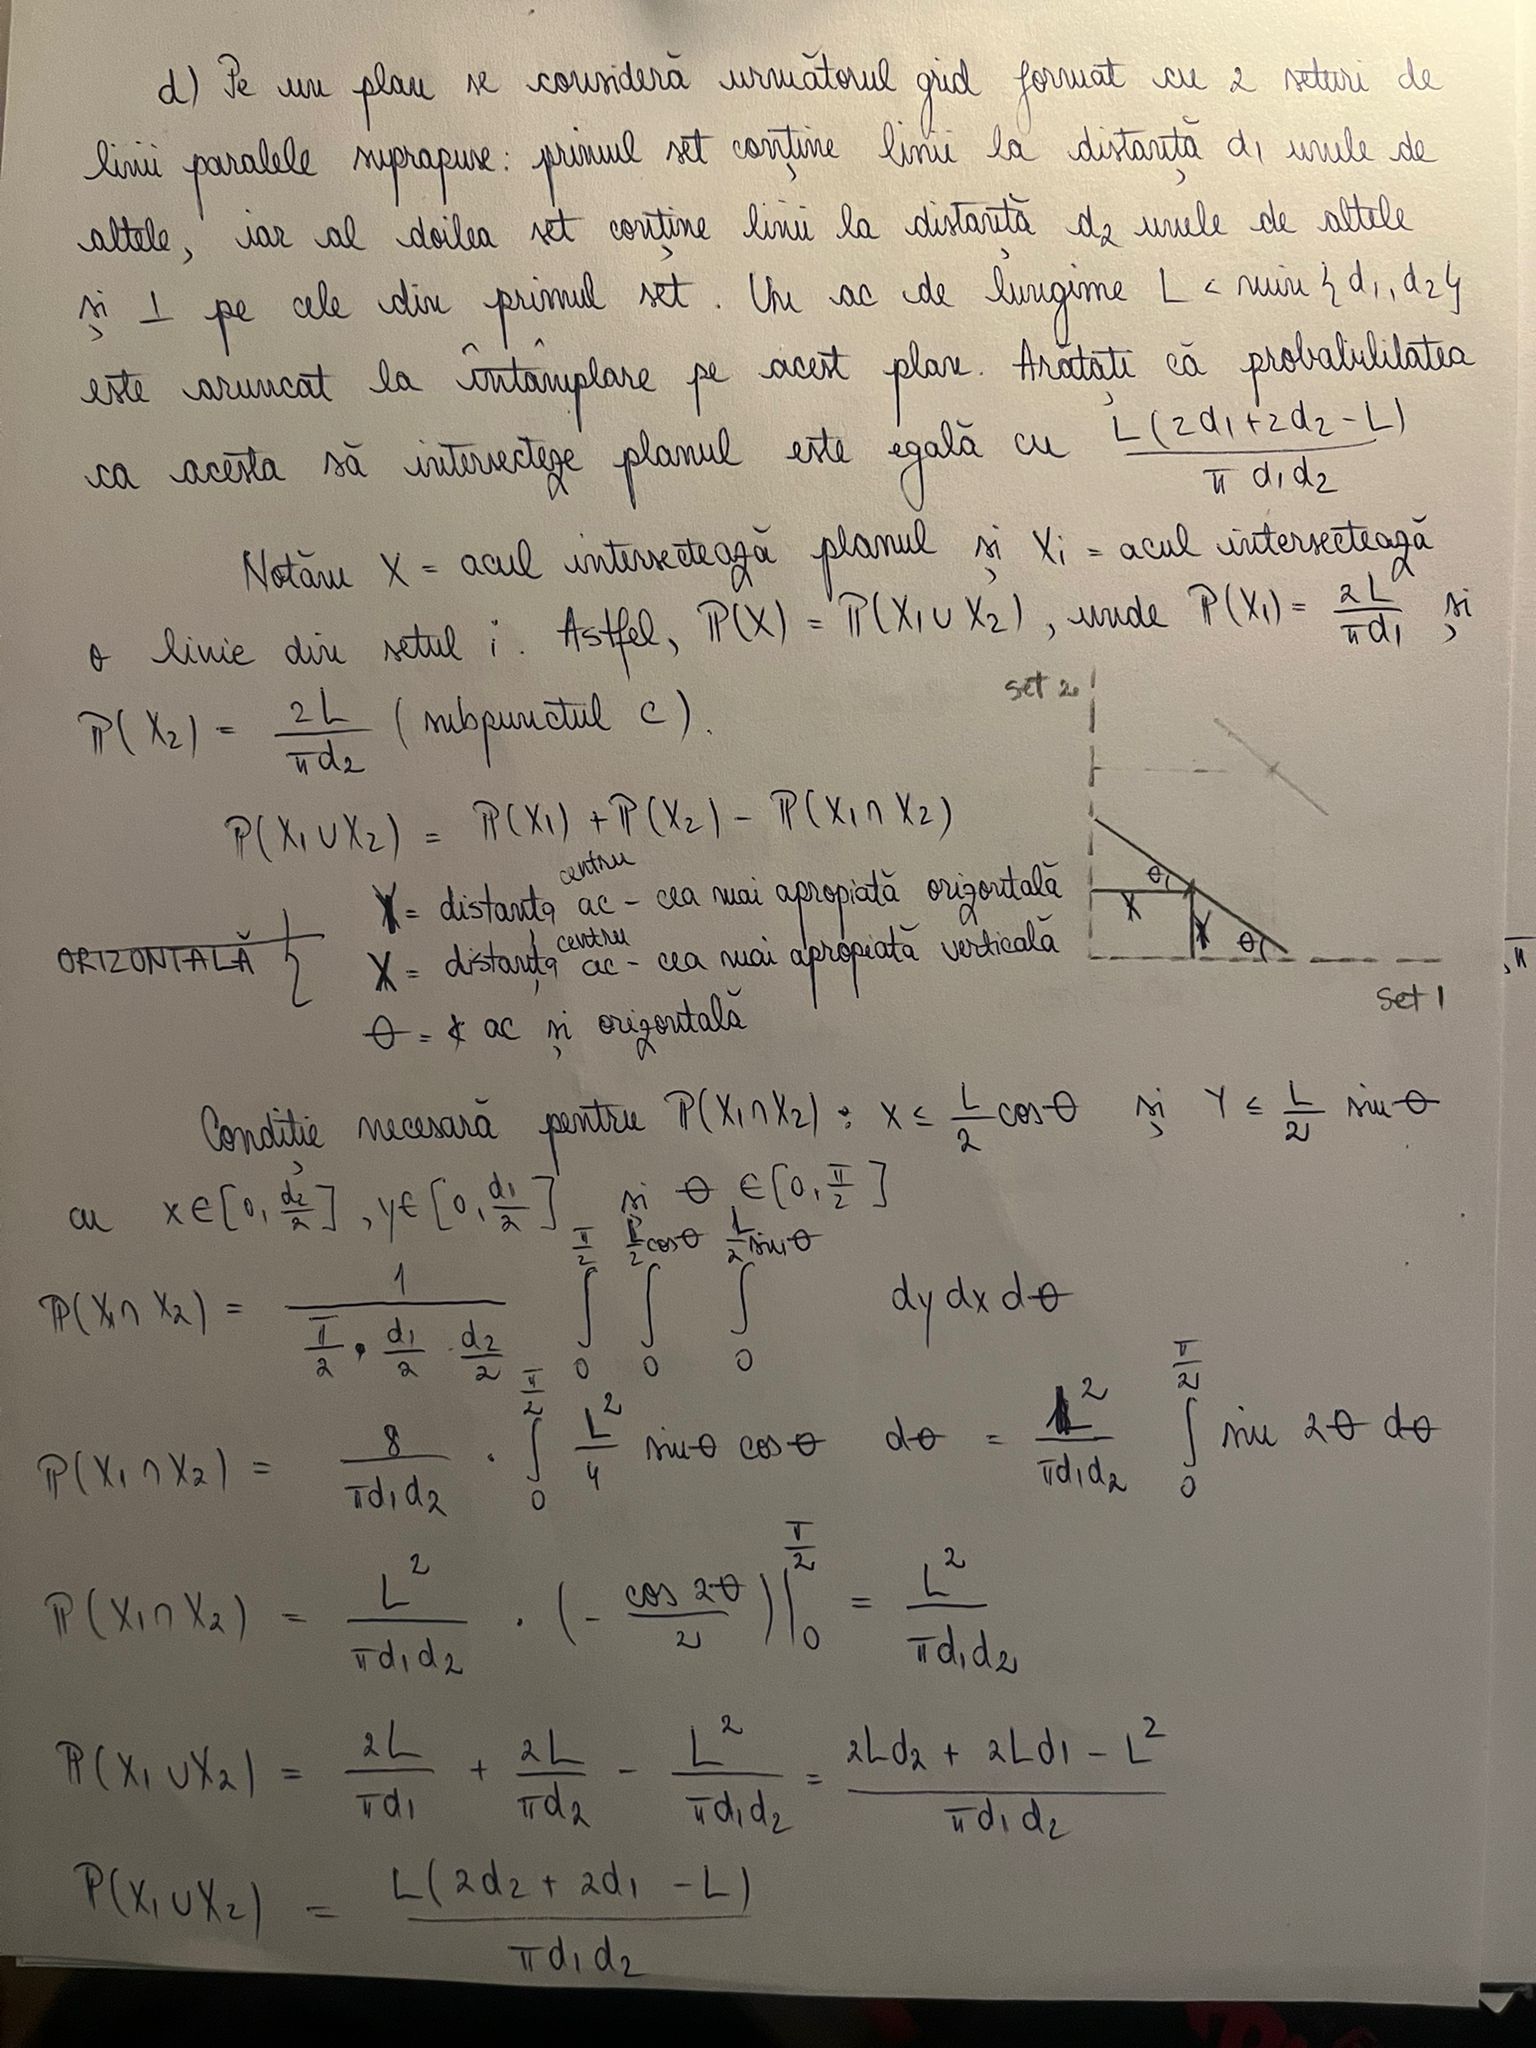 d) Pe un plan se consideră următorul grid format cu 2 seturi de
linii paralele suprapuse: primul set conține linii la distanță d₁ unele de
altele, iar al doilea set conține linii la distanță d₂ unele de altele
și ⊥ pe cele din primul set. Un ac de lungime L < min {d₁, d₂}
este aruncat la întâmplare pe acest plan. Arătați că probabilitatea
ca acesta să intersecteze planul este egală cu L(2d₁+2d₂-L) / πd₁d₂
Notăm X = acul intersectează planul și Xi = acul intersectează
o linie din setul i. Astfel, P(X) = P(X₁∪X₂), unde P(X₁) = 2L/πd₁ și
P(X₂) = 2L/πd₂ (subpunctul c).
set 2
P(X₁∪X₂) = P(X₁) + P(X₂) - P(X₁∩X₂)
Y = distanța centru ac - cea mai apropiată orizontală
ORIZONTALĂ
X = distanța centru ac - cea mai apropiată verticală
θ = ∢ ac și orizontală
θ
X
Y
θ
set 1
, π
Condiție necesară pentru P(X₁∩X₂): X ≤ L/2 cosθ și Y ≤ L/2 sinθ
cu x∈[0, d₂/2], y∈[0, d₁/2] și θ∈[0, π/2]
P(X₁∩X₂) = 1/(π/2 · d₁/2 · d₂/2) ∫₀^(π/2) ∫₀^(L/2 cosθ) ∫₀^(L/2 sinθ) dy dx dθ
P(X₁∩X₂) = 8/πd₁d₂ · ∫₀^(π/2) L²/4 sinθ cosθ dθ = L²/πd₁d₂ ∫₀^(π/2) sin 2θ dθ
P(X₁∩X₂) = L²/πd₁d₂ · (- cos 2θ/2)|₀^(π/2) = L²/πd₁d₂
P(X₁∪X₂) = 2L/πd₁ + 2L/πd₂ - L²/πd₁d₂ = (2Ld₂ + 2Ld₁ - L²)/πd₁d₂
P(X₁∪X₂) = L(2d₂ + 2d₁ - L)/πd₁d₂